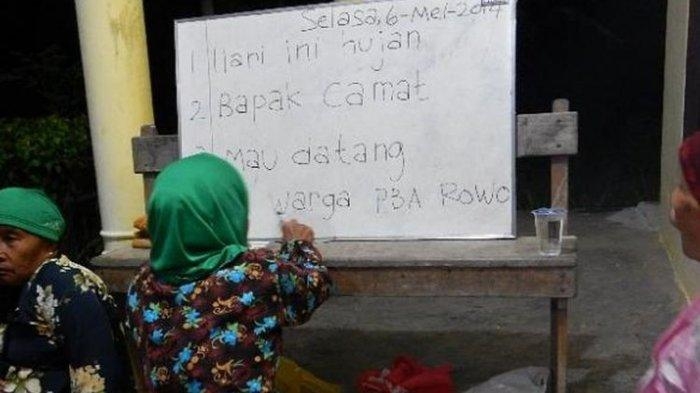 Selasa, 6-Mei-2014
1 Hari ini hujan
2 Bapak Camat
3 Mau datang
warga PBA ROWO